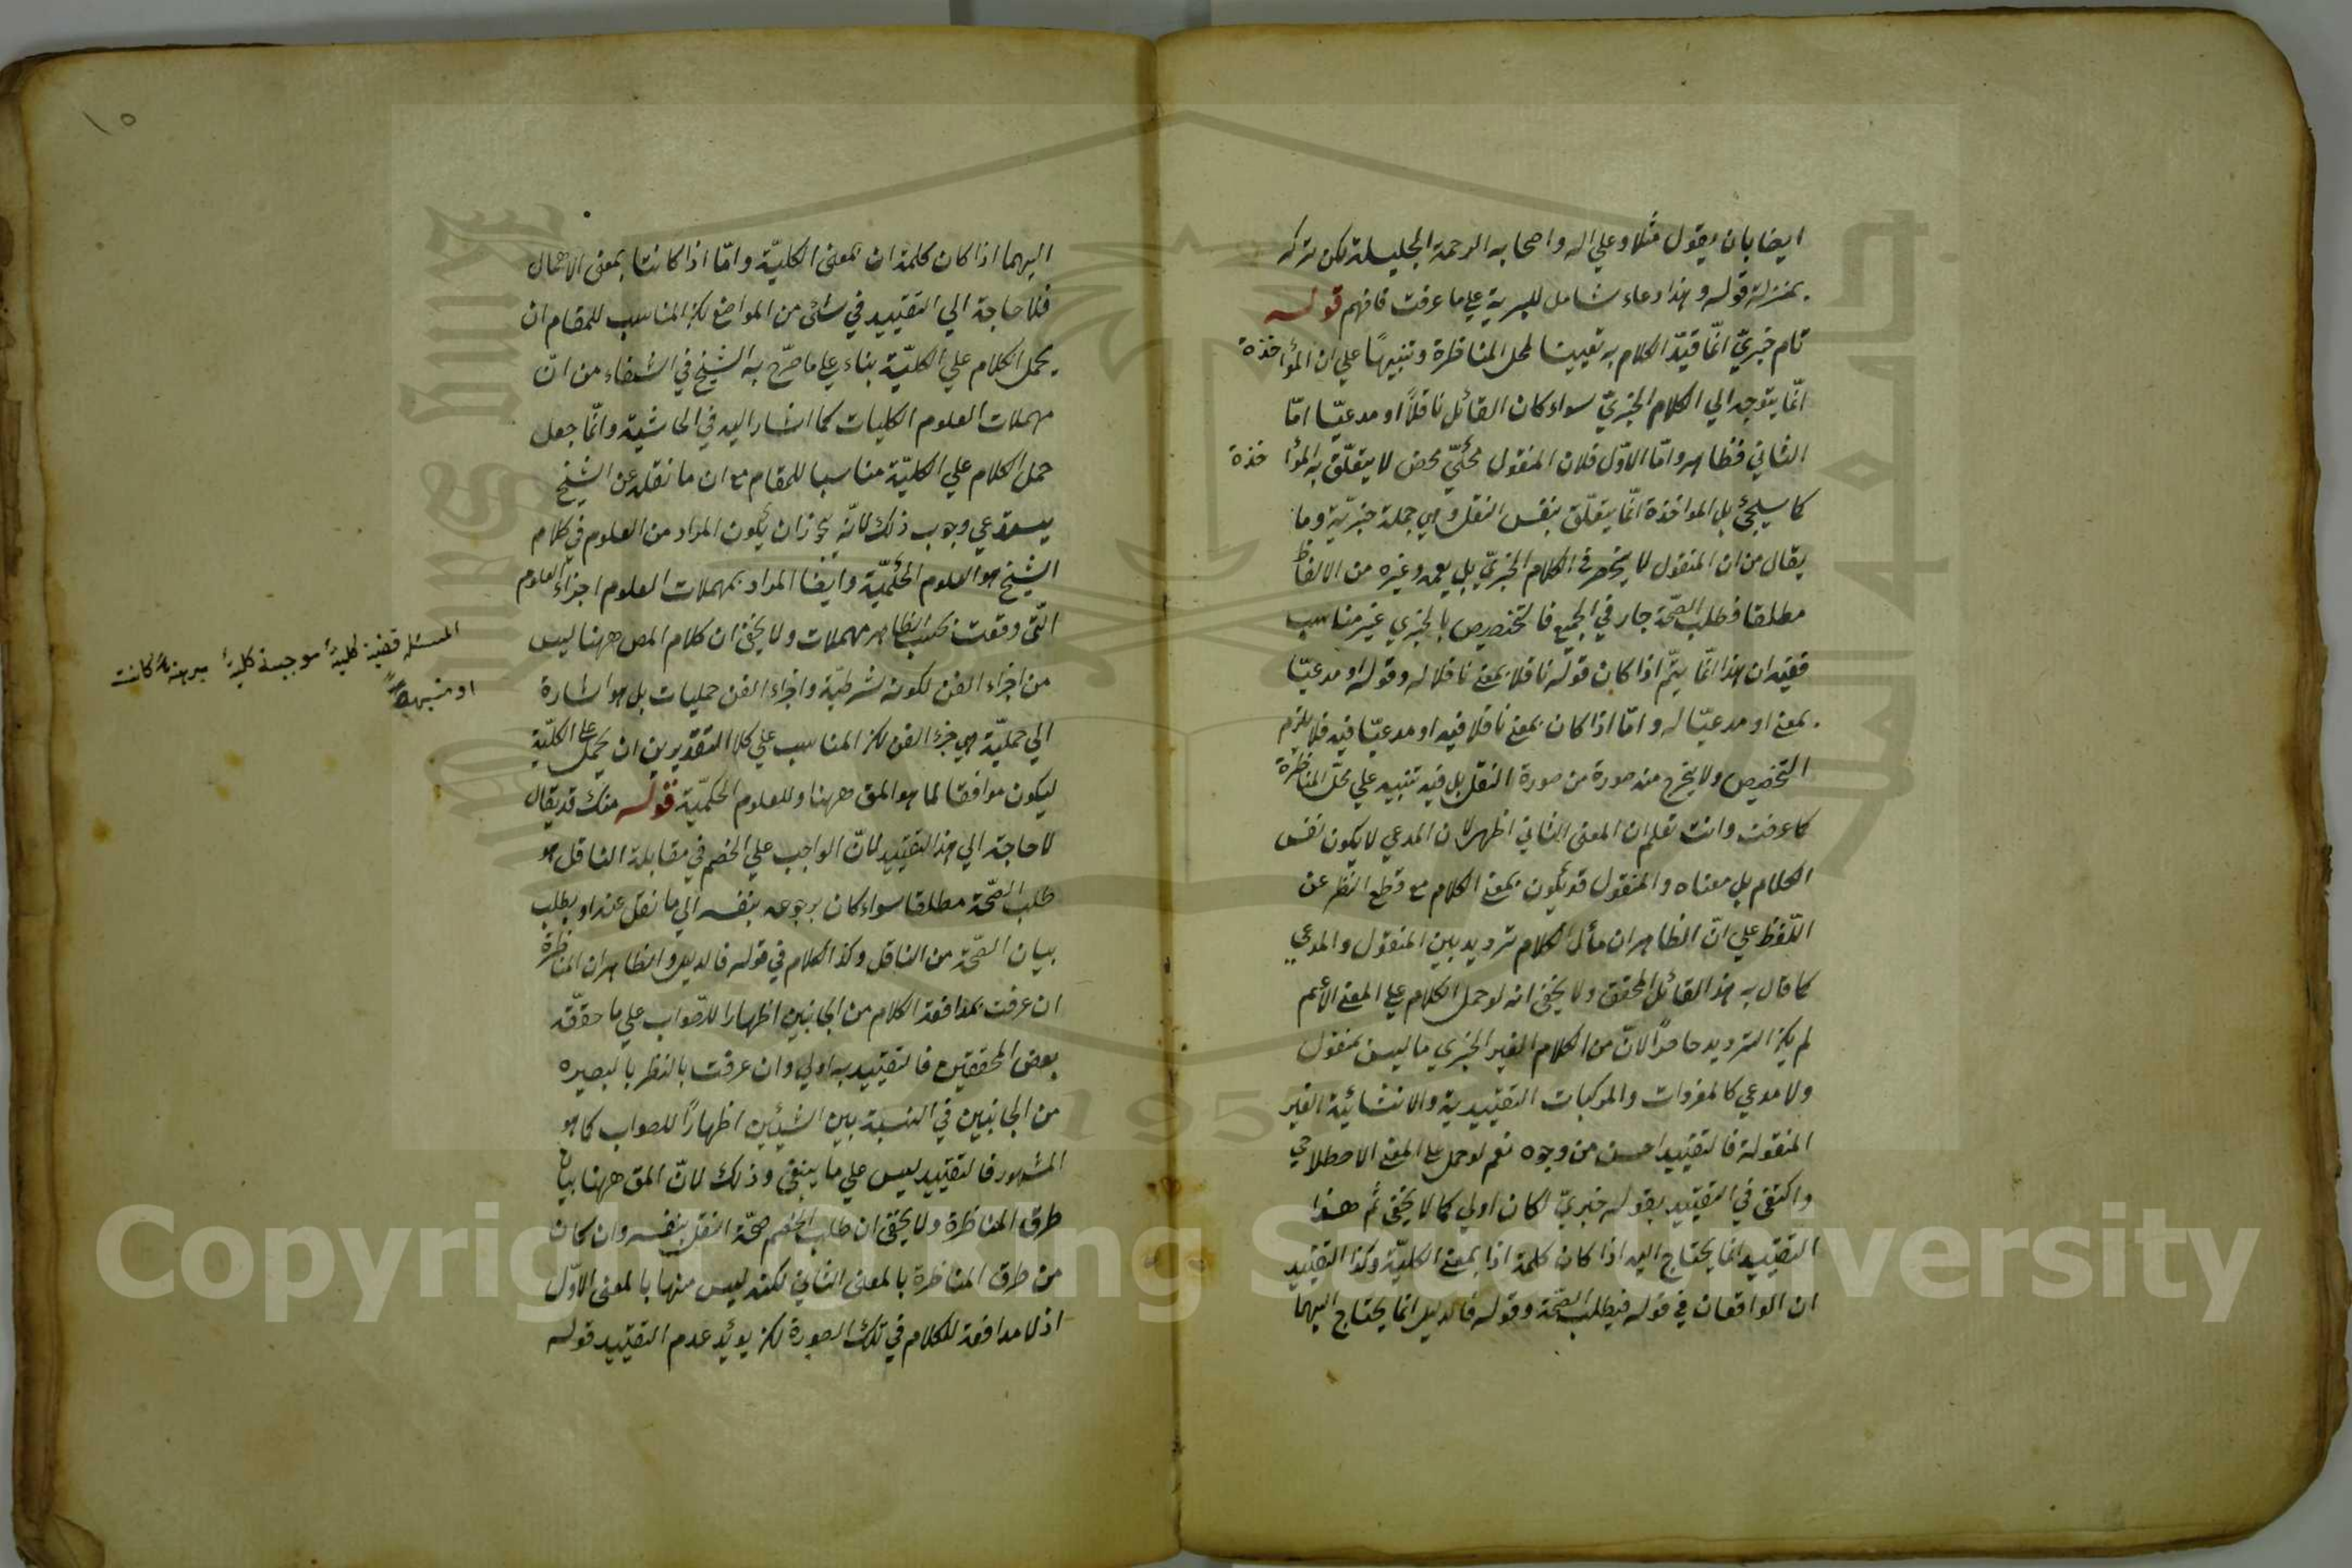 ايضا بان يقول مثلا وعلي اله واصحابه الرحمة الجليلة لكن تركه
بمنزلة قوله وهذا دعاء شامل للبرية علي ما عرفت فافهم قوله
تام خبريّ انّما قيّد الكلام به تعيينا لمحل المناظرة وتنبيهًا علي ان المؤاخذة
انّما يتوجه الي الكلام الخبريّ سواء كان القائل ناقلاً او مدعيّا امّا
الثاني فظاهر وامّا الاوّل فلان المنقول محكيّ محض لا يتعلّق به المؤاخذة
كما سيجئ بل المواخذة انّما يتعلّق بنفس النقل وهي جملة خبريّة وما
يقال من ان المنقول لا ينحصر في الكلام الخبريّ بل يعمه وغيره من الالفاظ
مطلقا فطلب الصّحّة جار في الجميع فالتخصيص بالخبري غير مناسب
ففيه ان هذا انّما يتمّ اذا كان قوله ناقلا بمعني ناقلا له وقوله او مدعيّا
بمعني او مدعيّا له وامّا اذا كان بمعني ناقلا فيه او مدعيّا فيه فلا يلزم
التخصيص ولا يخرج منه صورة من صورة النقل بل فيه تنبيه علي محلّ المناظرة
كما عرفت وانت تعلم ان المعنى الثاني اظهر لان المدعي لا يكون نفس
الكلام بل معناه والمنقول قد يكون بمعني الكلام مع قطع النظر عن
اللّفظ علي انّ الظاهر ان مأل الكلام ترديد بين المنقول والمدعي
كما قال به هذا القائل المحقق ولا يخفى انه لو حمل الكلام علي المعنى الاعم
لم يكن الترديد حاصرًا لانّ من الكلام الغير الخبري ما ليس بمنقول
ولا مدعي كالمفردات والمركبات التقييدية والانشائية الغير
المنقولة فالتقييد احسن من وجوه نعم لو حمل علي المعنى الاصطلاحي
واكتفى في التقييد بقوله خبريّ لكان اولي كما لا يخفى ثم هذا
التقييد انما يحتاج اليه اذا كان كلمة اذا بمعنى الكليّة وكذا التقييد
ان الواقعان في قوله فيطلب الصّحّة وقوله فالدليل انما يحتاج اليهما
١٥
اليهما اذا كان كلمة ان بمعنى الكليّة وامّا اذا كانتا بمعنى الاهمال
فلا حاجة الي التقييد في شئ من المواضع لكن المناسب للمقام ان
يحمل الكلام علي الكليّة بناء علي ما صرّح به الشيخ في الشفاء من انّ
مهملات العلوم الكليات كما اشار اليه في الحاشية وانّما جعل
حمل الكلام علي الكليّة مناسبا للمقام مع ان ما نقله عن الشيخ
يستدعي وجوب ذلك لانّه يجوز ان يكون المراد من العلوم في كلام
الشيخ هو العلوم الحكميّة وايضا المراد بمهملات العلوم اجزاء العلوم
التّي وقعت بحسب الظاهر مهملات ولا يخفى ان كلام المص ههنا ليس
من اجزاء الفن لكونه شرطيّة واجزاء الفن حمليات بل هو اشارة
الي حمليّة هي جزء الفن لكن المناسب علي كلا التقديرين ان يحمل علي الكليّة
ليكون موافقا لما هو المق ههنا وللعلوم الحكميّة قوله منك قد يقال
لا حاجة الي هذا التقييد لانّ الواجب علي الخصم في مقابلة الناقل هو
طلب الصّحّة مطلقا سواء كان برجوعه بنفسه الي ما نقل عنه او بطلب
بيان الصّحّة من الناقل وكذا الكلام في قوله فالدليل والظاهر ان المناظرة
ان عرفت بمدافعة الكلام من الجانبين اظهارا للصّواب علي ما حققّه
بعض المحققين فالتقييد به اولي وان عرفت بالنظر بالبصيره
من الجانبين في النسبة بين الشيئين اظهارًا للصواب كما هو
المشهور فالتقييد ليس علي ما ينبغي وذلك لانّ المق ههنا بيان
طرق المناظرة ولا يخفى ان طلب الخصم صحّة النقل بنفسه وان كان
من طرق المناظرة بالمعنى الثاني لكنه ليس منها بالمعنى الاوّل
اذ لا مدافعة للكلام في تلك الصورة لكن يؤيّد عدم التقييد قوله
المسئلة قضية كلية موجبة كلية مبرهنة كانت
او منبهة
Copyright © King Saud University